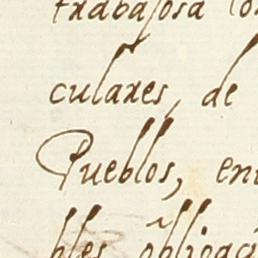 trabajosa co
culares, de
Pueblos, en
bles obligaci